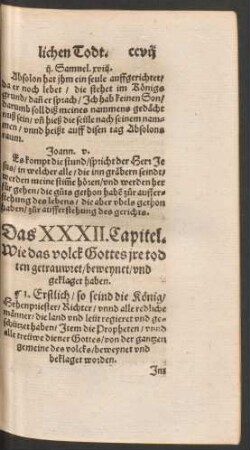 lichen Todt. ccvij
ij. Samuel. xviij.
Absolon hat jhm ein seule auffgerichtet/
da er noch lebet / die stehet im Königs
grund/ dañ er sprach / Jch hab keinen Son/
darumb soll diß meines nammens gedächt
nuß sein/ vñ hieß die seüle nach seinem nam-
men / vnnd heißt auff disen tag Absolons
raum.
Joann. v.
Es kompt die stund/spricht der Herr Je-
sus/ in welcher alle / die inn gräbern seind/
werden meine stim̃e hören/vnd werden her
für gehen/ die gůts gethon habẽ zůr auffer-
stehung des lebens / die aber vbels gethon
haben/ zůr aufferstehung des gerichts.
Das XXXII. Capitel.
Wie das volck Gottes jre tod
ten getrauwret/beweynet/vnd
geklaget haben.
¶ 1. Erstlich/ so seind die König/
Hohenpriester/ Richter / vnnd alle redliche
männer/ die land vnd leüt regieret vnd ge-
schützet haben/ Jtem die Propheten / vnnd
alle trewe diener Gottes/ von der gantzen
gemeine des volcks/beweynet vnd
beklaget worden.
Jns